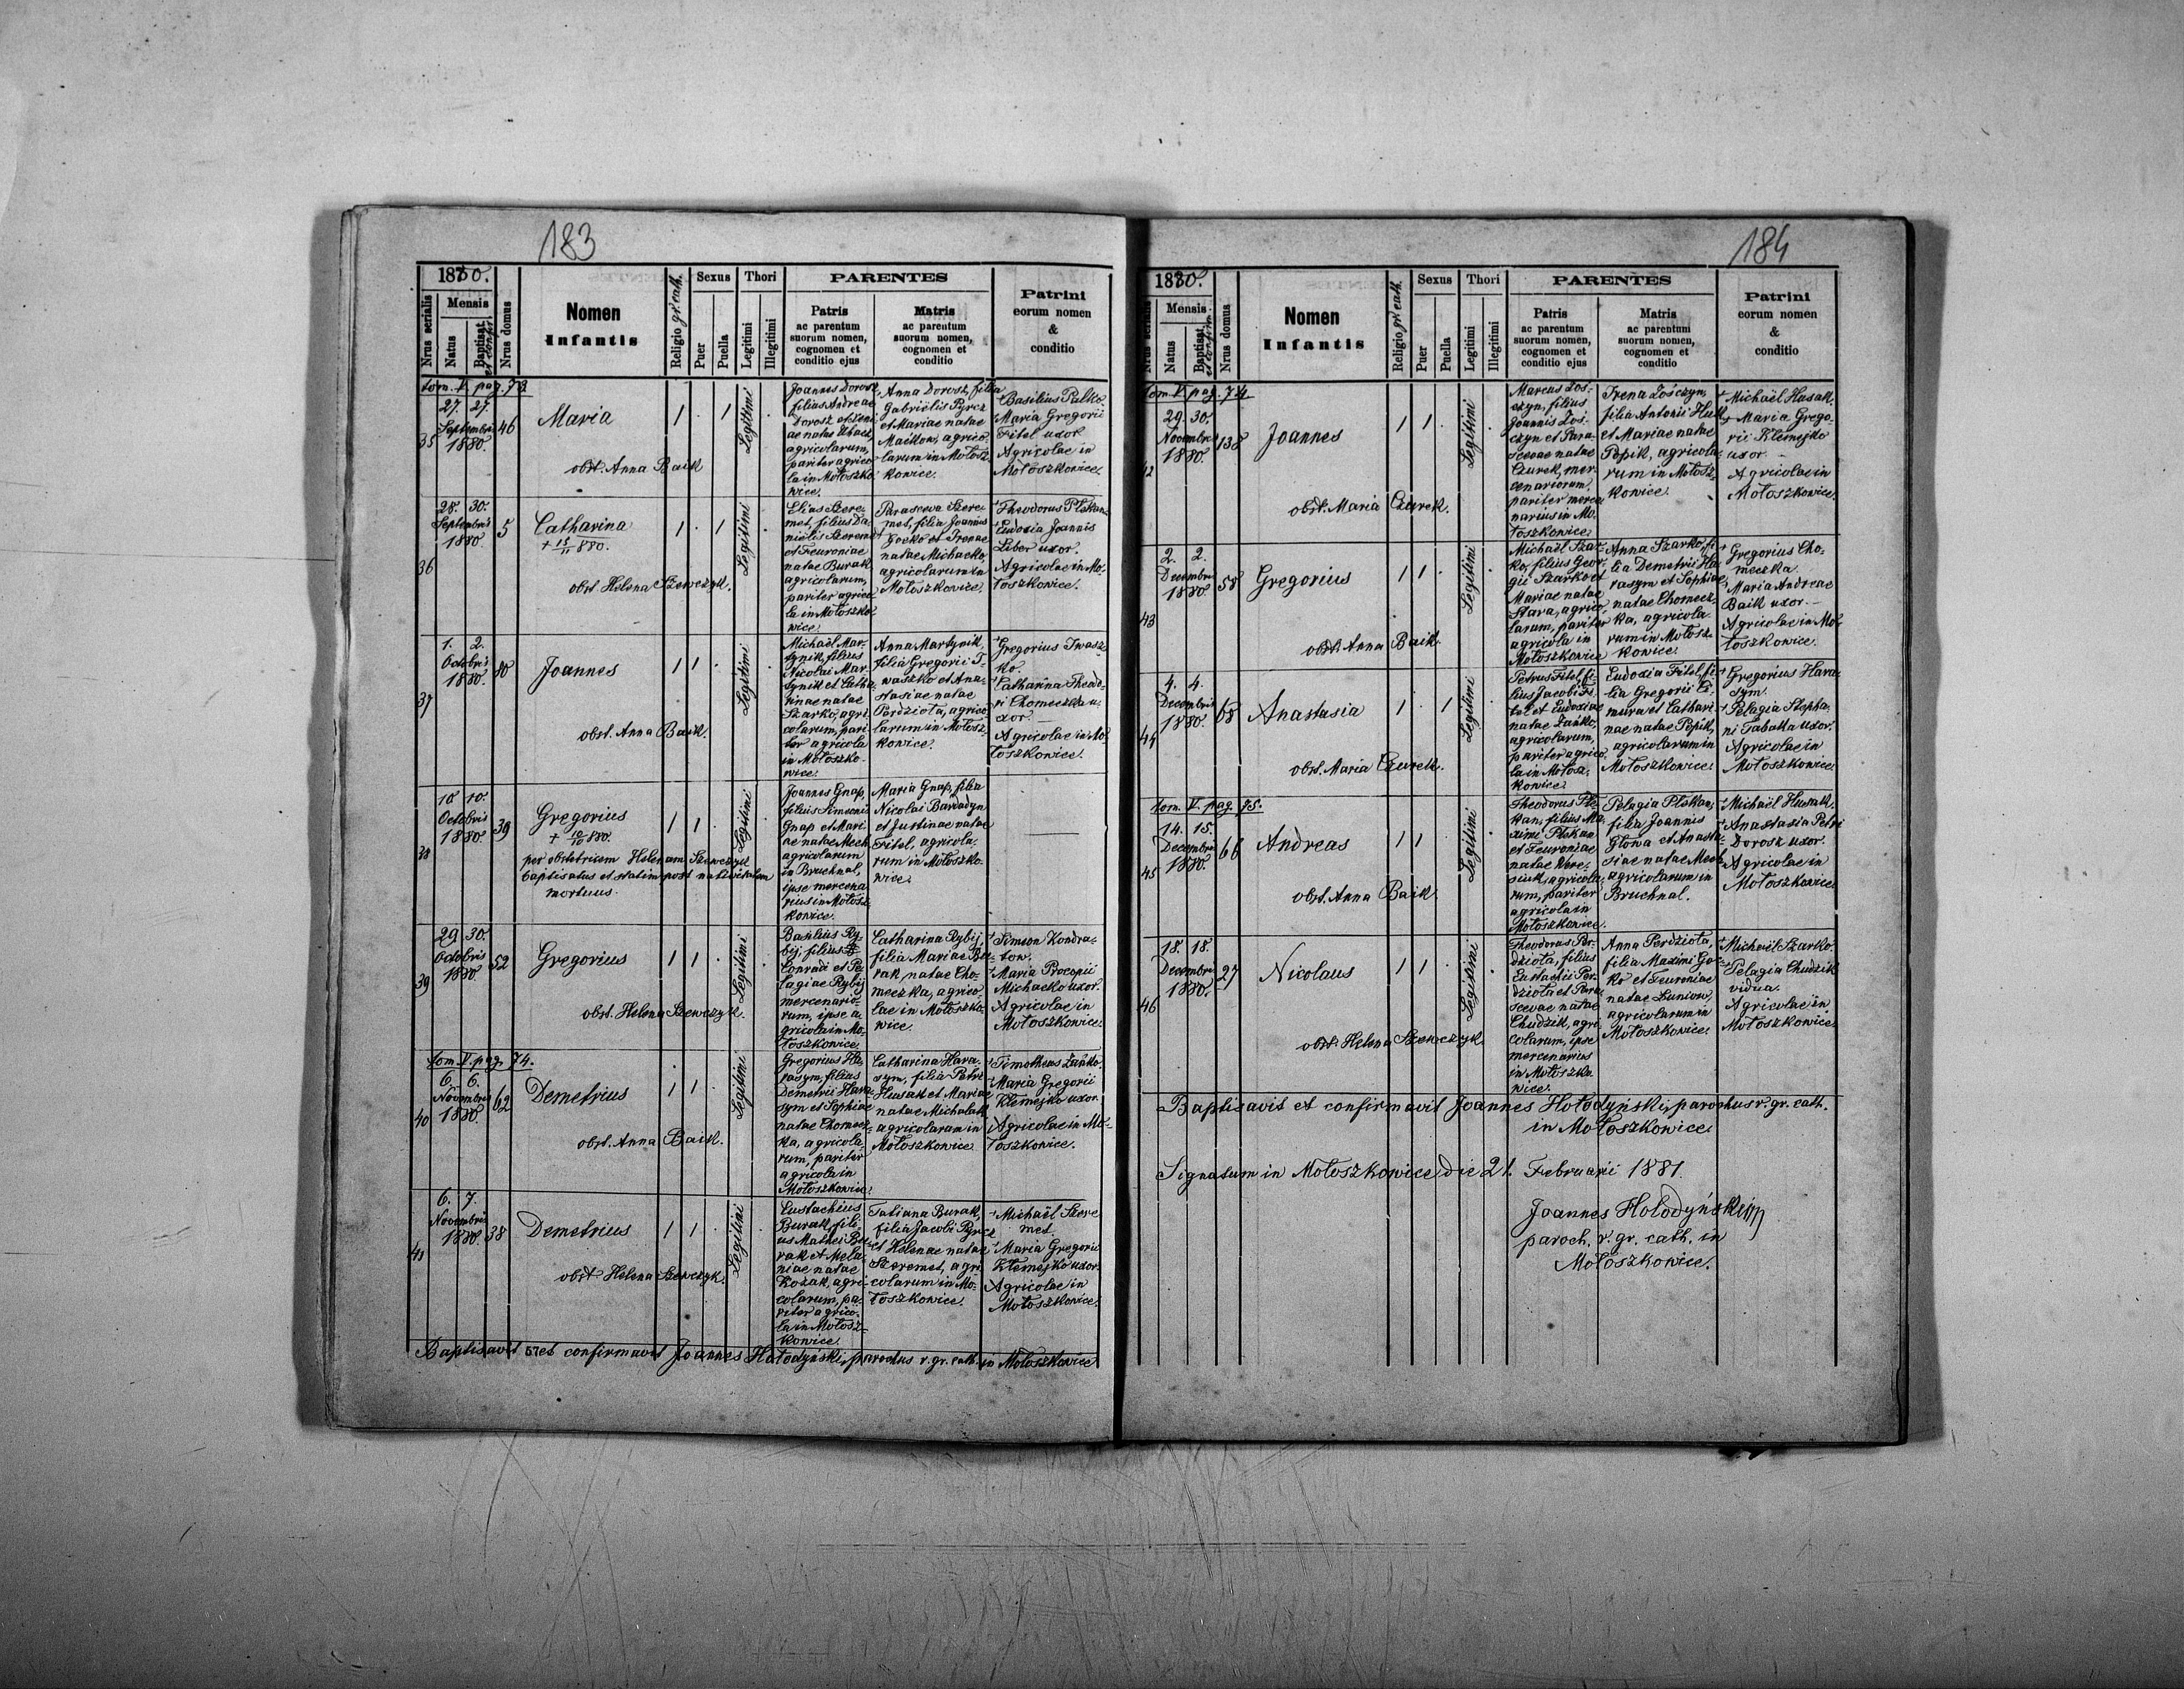 183
1880.
Nrus serialis
Mensis
Natus
Baptisat.
et confir.
Nrus domus
Nomen
Infantis
Religio gr. cath.
Sexus
Puer
Puella
Thori
Legitimi
Illegitimi
PARENTES
Patris
ac parentum
suorum nomen,
cognomen et
conditio ejus
Matris
ac parentum
suorum nomen,
cognomen et
conditio
Patrini
eorum nomen
&
conditio
tom. V. pag. 73
35
27. 27.
Septembris
1880.
46
Maria
obst. Anna Baik
1 . 1
Legitimi
Joannes Dorosz,
filius Andreae
Dorosz et
ae natae
agricolarum,
pariter agrico-
la in Mołoszko
wice.
Anna Dorosz, filia
Gabriëlis Pyrcz
et Mariae natae
Maćkow, agrico-
larum in Mołosz-
kowice.
Basilius Palko.
Maria Gregorii
Fitel uxor
Agricolae in
Mołoszkowice.
36
28. 30.
Septembris
1880.
5
Catharina
+ 15/11 880.
obst. Helena Szewczyk.
1 . 1
Legitimi
Elias Szere-
met, filius Da-
niëlis Szeremet
et Feuroniae
natae Burak
agricolarum,
pariter agrico-
la in Mołoszko
wice.
Parasceva Szere-
met, filia Joannis
Gocko et Irenae
natae Michaćko,
agricolarum in
Mołoszkowice.
Theodorus Płskan.
Eudoxia Joannis
Liber uxor.
Agricolae in Mo-
łoszkowice.
37
1. 2.
Octobris
1880.
80
Joannes
obst. Anna Baik.
1 1 .
Legitimi
Michaël Mar-
tynik, filius
Nicolai Mar-
tynik et Catha-
rinae natae
Szarko, agri-
colarum, pari-
ter agricola
in Mołoszko-
wice.
Anna Martynik,
filia Gregorii I-
waszko et Ana-
stasiae natae
Perdziota, agrico-
larum in Mołosz-
kowice.
Gregorius Iwasz-
ko.
Catharina Theodo-
ri Chomeczka u-
xor.
Agricolae in Mo-
łoszkowice.
38
10 10.
Octobris
1880.
39
Gregorius
+ 10/10 880.
per obstetricem Helenam Szewczyk
baptisatus et statim post nativitatem
mortuus.
1 1 .
Legitimi
Joannes Gnap,
filius Simeonis
Gnap et Mari-
ae natae Mech,
agricolarum
in Bruchnal,
ipse mercena
rius in Mołosz-
kowice.
Maria Gnap, filia
Nicolai
et Justinae natae
Fitel, agricola-
rum in Mołoszko-
wice.
39
29 30.
Octobris
1880.
52
Gregorius
obst. Helena Szewczyk.
1 1 .
Legitimi
Basilius Ry-
bij, filius
Conradi et Pe-
lagiae Rybij
mercenario-
rum, ipse a-
gricola in Mo-
łoszkowice.
Catharina Rybij,
filia Mariae Bu-
rak, natae Cho-
meczka, agrico-
lae in Mołoszko-
wice.
Simeon Kondra-
tow.
Maria Procopii
Michaćko uxor.
Agricolae in
Mołoszkowice.
tom. V. pag. 74.
40
6. 6.
Novembris
1880.
62
Demetrius
obst. Anna Baik.
1 1 .
Legitimi
Gregorius Ha-
rasym, filius
Demetrii Hara-
sym et Sophiae
natae Chomecz-
ka, agricola-
rum, pariter
agricola in
Mołoszkowice.
Catharina Hara-
sym, filia Petri
Husak et Mariae
natae Michalak
agricolarum in
Mołoszkowice
Timotheus Zańko.
Maria Gregorii
Klemejko uxor.
Agricolae in Mo-
łoszkowice.
41
6. 7.
Novembris
1880.
38
Demetrius
obst. Helena Szewczyk.
1 1 .
Legitimi
Eustachius
Burak, fili-
us Mathei Bu-
rak et Mela-
niae natae
Kozak, agri-
colarum, pa-
riter agrico-
la in Mołosz-
kowice.
Tatiana Burak,
filia Jacobi Pyrcz
et Helenae natae
Szeremet, agri-
colarum in Mo-
łoszkowice.
Michaël Szere
met.
Maria Gregorii
Klemejko uxor.
Agricolae in
Mołoszkowice.
Baptisavit et confirmavit Joannes Hołodyński, parochus r. gr. cath. in Mołoszkowice
184
1880.
Nrus serialis
Mensis
Natus
Baptisat.
et confirm.
Nrus domus
Nomen
Infantis
Religio gr. cath.
Sexus
Puer
Puella
Thori
Legitimi
Illegitimi
PARENTES
Patris
ac parentum
suorum nomen,
cognomen et
conditio ejus
Matris
ac parentum
suorum nomen,
cognomen et
conditio
Patrini
eorum nomen
&
conditio
tom V. pag. 74.
42
29. 30.
Novembris
1880.
138
Joannes
obst. Maria Czurek.
1 1 .
Legitimi
Marcus Łoś-
czyn, filius
Joannis Łoś-
czyn et Para-
scevae natae
Czurek, mer-
cenariorum,
pariter merce
narius in Mo-
łoszkowice.
Irena Łośczyn,
filia Antonii Huk
et Mariae natae
Popik, agricola-
rum in Mołosz-
kowice.
Michaël Husak.
Maria Grego-
rii Klemejko
uxor. -
Agricolae in
Mołoszkowice.
43
2. 2.
Decembris
1880.
58
Gregorius
obst. Anna Baik.
1 1 .
Legitimi
Michaël Szar-
ko, filius Geor-
gii Szarko et
Mariae natae
Stara, agrico-
larum, pariter
agricola in
Mołoszkowice
Anna Szarko, fi-
lia Demetrii Ha-
rasym et Sophiae
natae Chomecz-
ka, agricola-
rum in Mołosz-
kowice.
Gregorius Cho-
meczka.
Maria Andreae
Baik uxor. -
Agricolae in Mo-
łoszkowice.
44
4. 4.
Decembris
1880.
68
Anastasia
obst. Maria Czurek.
1 . 1
Legitimi
Petrus Fitel, fi-
lius Jacobi Fi-
tel et Eudoxiae
natae Zańko,
agricolarum,
pariter agrico-
la in Mołosz-
kowice.
Eudoxia Fitel, fi-
lia Gregorii Ci-
mura et Cathari-
nae natae Popik,
agricolarum in
Mołoszkowice.
Gregorius Hara-
sym.
Pelagia Stepha-
ni Tabaka uxor.
Agricolae in
Mołoszkowice.
tom. V. pag. 75.
45
14. 15.
Decembris
1880.
66
Andreas
obst. Anna Baik.
1 1 .
Legitimi
Theodorus Płs-
kan, filius Ma-
ximi Płskan
et Feuroniae
natae
siuk, agricola-
rum, pariter
agricola in
Mołoszkowice.
Pelagia Płskan,
filia Joannis
Głowa et Anasta-
siae natae Mech,
agricolarum in
Bruchnal.
Michaël Husak.
Anastasia Petri
Dorosz uxor.
Agricolae in
Mołoszkowice.
46
18. 18.
Decembris
1880.
27
Nicolaus
obst. Helena Szewczyk
1 1 .
Legitimi
Theodorus Per-
dziota, filius
Eustachii Per-
dziota et Para-
scevae natae
Chudzik, agri-
colarum, ipse
mercenarius
in Mołoszko
wice.
Anna Perdziota,
filia Maximi Goc-
ko et Feuroniae
natae Łuniow,
agricolarum in
Mołoszkowice.
Michaël Szarko.
Pelagia Chudzik
vidua.
Agricolae in
Mołoszkowice.
Baptisavit et confirmavit Joannes Hołodyński, parochus r. gr. cath.
in Mołoszkowice.
Signatum in Mołoszkowice die 21. Februarii 1881.
Joannes Hołodyński
paroch. r. gr. cath. in
Mołoszkowice.